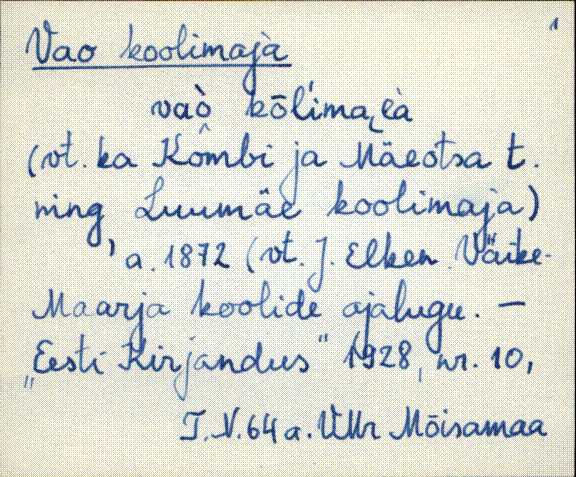 1
Vao koolimaja
vaò kōĺimai̯à
(vt. ka Kõmbi ja Mäeotsa t.
ning Luumäe koolimaja)
a. 1872 (vt. J. Elken Väike-
Maarja koolide ajalugu. —
„Eesti Kirjandus" 1928, nr. 10,
T.V. 64 a. VMr Mõisamaa